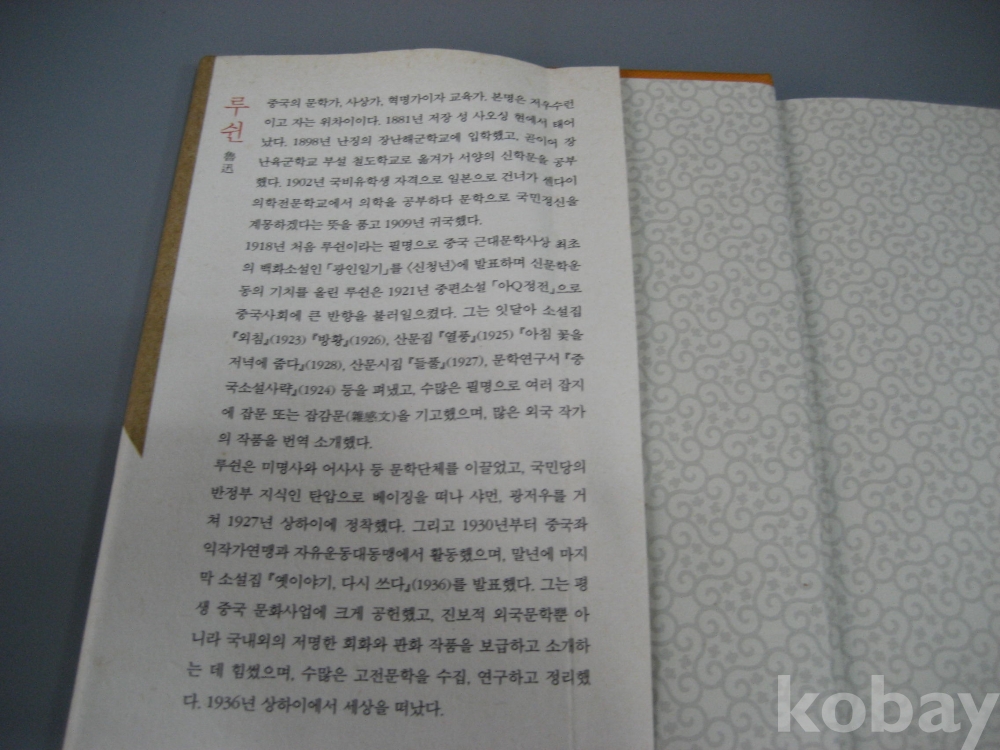 루쉰
魯迅
중국의 문학가, 사상가, 혁명가이자 교육가. 본명은 저우수런
이고 자는 위차이이다. 1881년 저장 성 사오싱 현에서 태어
났다. 1898년 난징의 장난해군학교에 입학했고, 곧이어 장
난육군학교 부설 철도학교로 옮겨가 서양의 신학문을 공부
했다. 1902년 국비유학생 자격으로 일본으로 건너가 센다이
의학전문학교에서 의학을 공부하다 문학으로 국민정신을
계몽하겠다는 뜻을 품고 1909년 귀국했다.
1918년 처음 루쉰이라는 필명으로 중국 근대문학사상 최초
의 백화소설인 「광인일기」를 〈신청년〉에 발표하며 신문학운
동의 기치를 올린 루쉰은 1921년 중편소설 「아Q정전」으로
중국사회에 큰 반향을 불러일으켰다. 그는 잇달아 소설집
『외침』(1923) 『방황』(1926), 산문집 『열풍』(1925) 『아침 꽃을
저녁에 줍다』(1928), 산문시집 『들풀』(1927), 문학연구서 『중
국소설사략』(1924) 등을 펴냈고, 수많은 필명으로 여러 잡지
에 잡문 또는 잡감문(雜感文)을 기고했으며, 많은 외국 작가
의 작품을 번역 소개했다.
루쉰은 미명사와 어사사 등 문학단체를 이끌었고, 국민당의
반정부 지식인 탄압으로 베이징을 떠나 샤먼, 광저우를 거
쳐 1927년 상하이에 정착했다. 그리고 1930년부터 중국좌
익작가연맹과 자유운동대동맹에서 활동했으며, 말년에 마지
막 소설집 『옛이야기, 다시 쓰다』(1936)를 발표했다. 그는 평
생 중국 문화사업에 크게 공헌했고, 진보적 외국문학뿐 아
니라 국내외의 저명한 회화와 판화 작품을 보급하고 소개하
는 데 힘썼으며, 수많은 고전문학을 수집, 연구하고 정리했
다. 1936년 상하이에서 세상을 떠났다.
kobay